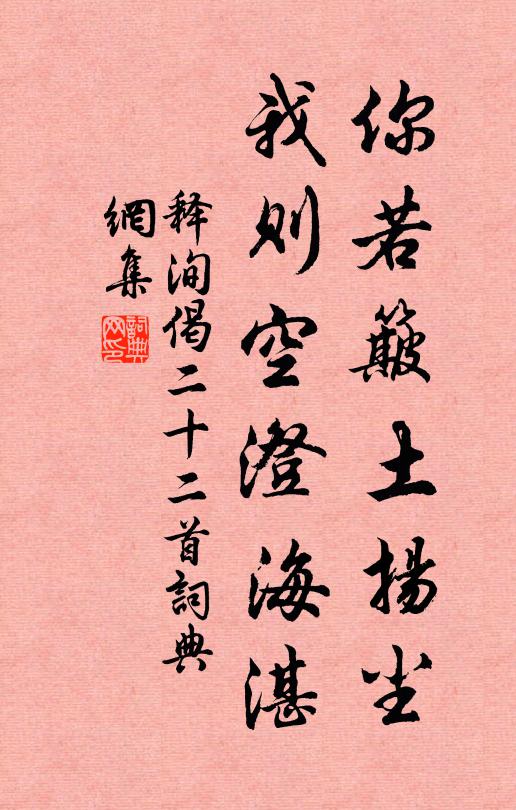 你若簸土揚尘
我则空澄海湛
释洵偈二十二首詞典
網集
詞典
网印